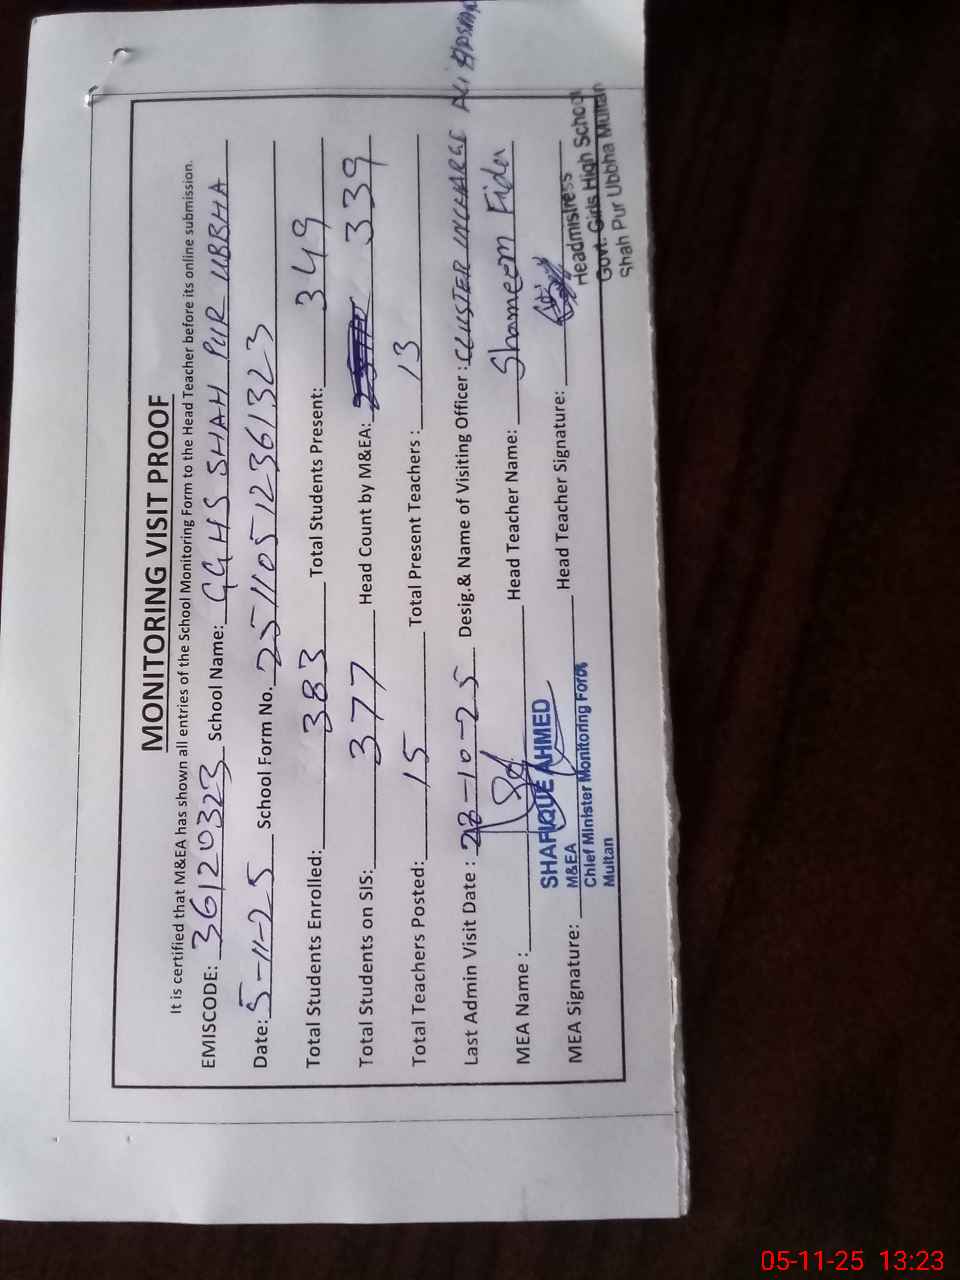 MONITORING VISIT PROOF
It is certified that M&EA has shown all entries of the School Monitoring Form to the Head Teacher before its online submission.
EMISCODE: 36120323 School Name: GGHS SHAH PUR UBBHA
Date: 5-11-25 School Form No. 25110512361323
Total Students Enrolled: 383 Total Students Present: 349
Total Students on SIS: 377 Head Count by M&EA: 339
Total Teachers Posted: 15 Total Present Teachers : 13
Last Admin Visit Date : 28-10-25 Desig.& Name of Visiting Officer : CLUSTER INCHARGE ALI
MEA Name : Head Teacher Name: Shameem Fida
SHAFIQUE AHMED
MEA Signature: Head Teacher Signature:
M&EA
Chief Minister Monitoring Force
Multan
Headmistress
Govt. Girls High School
Shah Pur Ubbha Multan
05-11-25 13:23